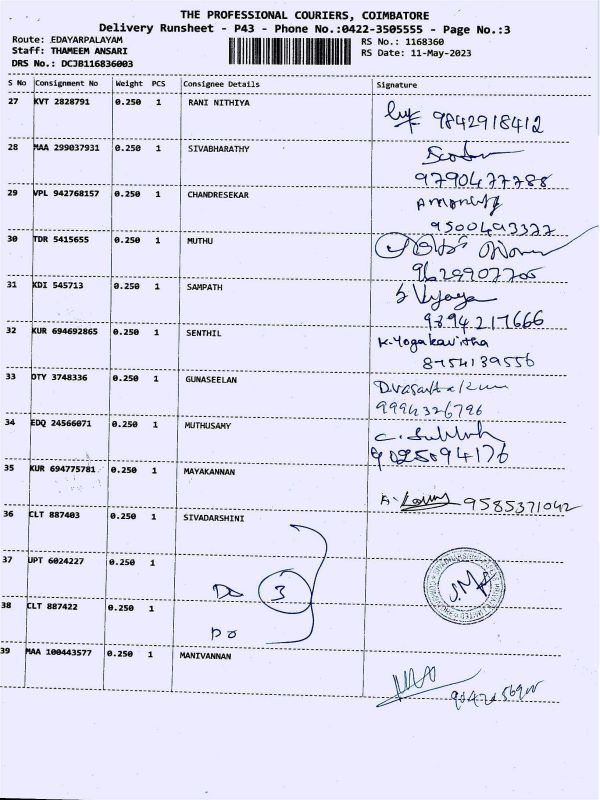 THE PROFESSIONAL COURIERS, COIMBATORE
Delivery Runsheet - P43 - Phone No.:0422-3505555 - Page No.:3
Route: EDAYARPALAYAM RS No.: 1168360
Staff: THAMEEM ANSARI RS Date: 11-May-2023
DRS No.: DCJB116836003
S No Consignment No Weight PCS Consignee Details Signature
27 KVT 2828791 0.250 1 RANI NITHIYA
9842918412
28 MAA 299037931 0.250 1 SIVABHARATHY
9790477788
29 VPL 942768157 0.250 1 CHANDRESEKAR
9500493377
30 TDR 5415655 0.250 1 MUTHU
9629907705
31 KDI 545713 0.250 1 SAMPATH
S Vijaya
9394217666
32 KUR 694692865 0.250 1 SENTHIL
K.Yogakavitha
8754139556
33 OTY 3748336 0.250 1 GUNASEELAN
9994326796
34 EDQ 24566071 0.250 1 MUTHUSAMY
9095094176
35 KUR 694775781 0.250 1 MAYAKANNAN
9585371042
36 CLT 887403 0.250 1 SIVADARSHINI
37 UPT 6024227 0.250 1
Do 3
38 CLT 887422 0.250 1
Do
39 MAA 100443577 0.250 1 MANIVANNAN